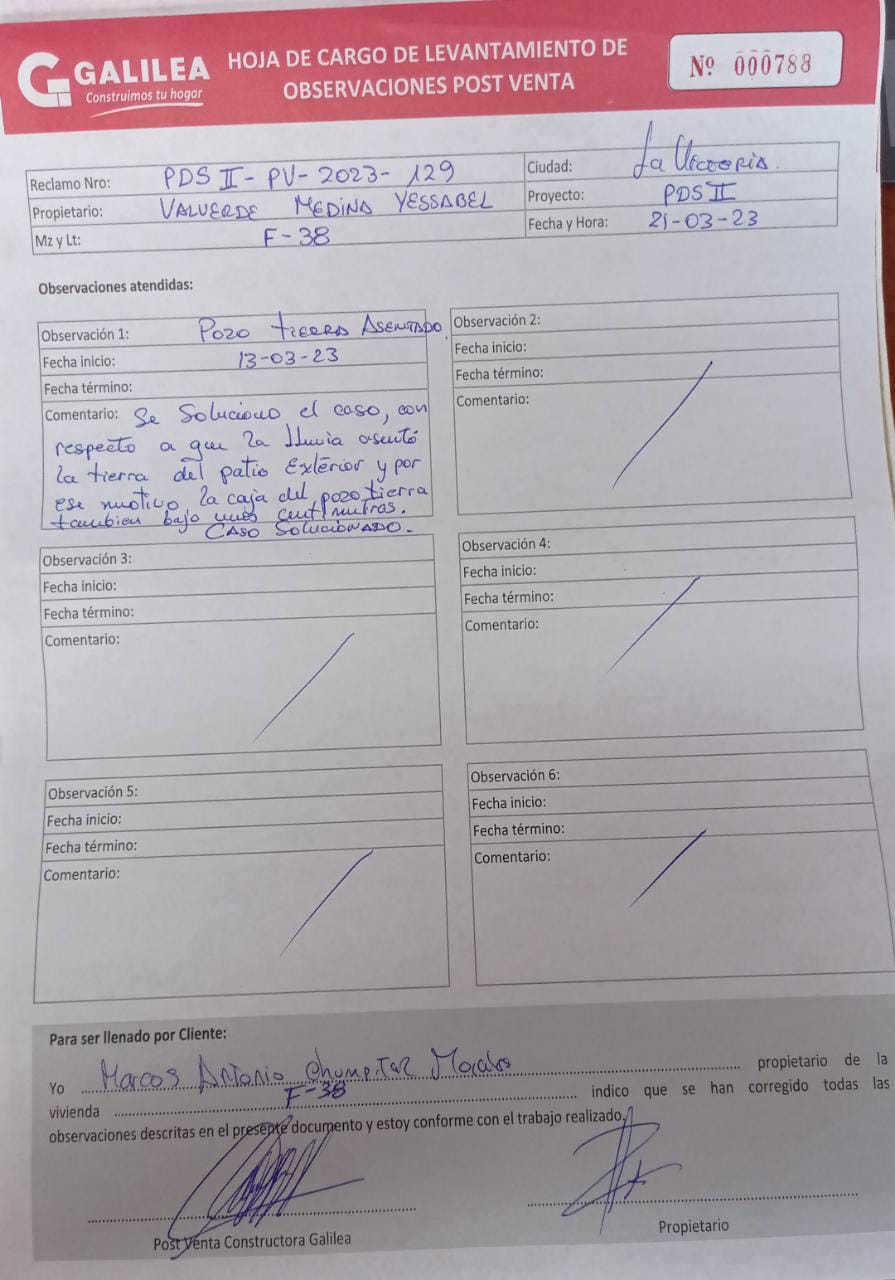 GALILEA
Construimos tu hogar
HOJA DE CARGO DE LEVANTAMIENTO DE
OBSERVACIONES POST VENTA
Nº 000788
Reclamo Nro: PDS II - PV - 2023 - 129
Ciudad: La Victoria.
Propietario: VALVERDE MEDINA YESSABEL
Proyecto: PDS II
Mz y Lt: F - 38
Fecha y Hora: 21-03-23
Observaciones atendidas:
Observación 1: Pozo tierra Asentado.
Fecha inicio: 13-03-23
Fecha término:
Comentario: Se Soluciono el caso, con
respecto a que la lluvia asentó
la tierra del patio Exterior y por
ese motivo la caja del pozo tierra
tambien bajo unos centimetros.
CASO SOLUCIONADO.
Observación 2:
Fecha inicio:
Fecha término:
Comentario:
Observación 3:
Fecha inicio:
Fecha término:
Comentario:
Observación 4:
Fecha inicio:
Fecha término:
Comentario:
Observación 5:
Fecha inicio:
Fecha término:
Comentario:
Observación 6:
Fecha inicio:
Fecha término:
Comentario:
Para ser llenado por Cliente:
Yo Marcos Antonio Chumpitaz Morales propietario de la
vivienda F-38 indico que se han corregido todas las
observaciones descritas en el presente documento y estoy conforme con el trabajo realizado.
Post Venta Constructora Galilea
Propietario